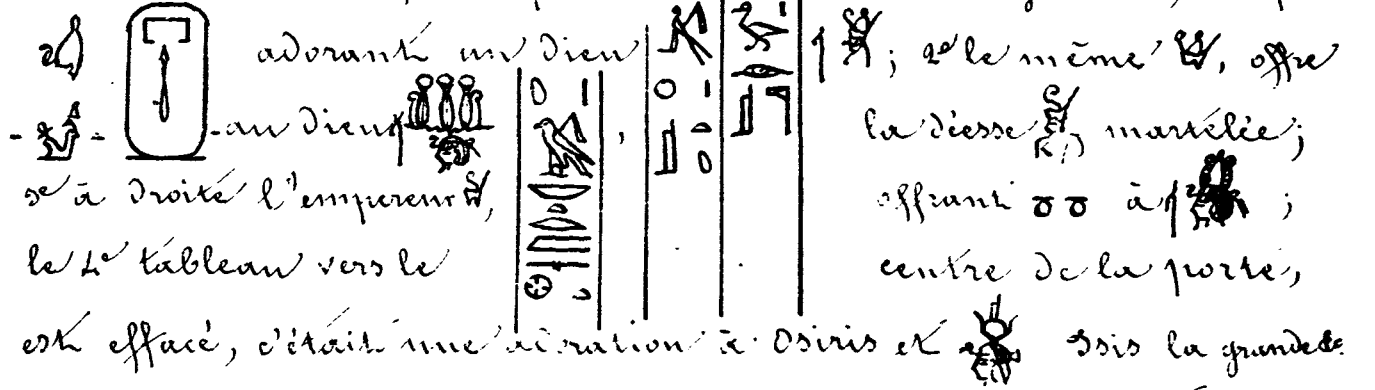 adorant un Dieu ; 2º le même, offre
- - au Dieu , la déesse martelée;
3º à droite l'empereur, offrant à ;
le 4º tableau vers le centre de la porte,
est effacé, c'était une adoration à Osiris et Isis la grande &c.